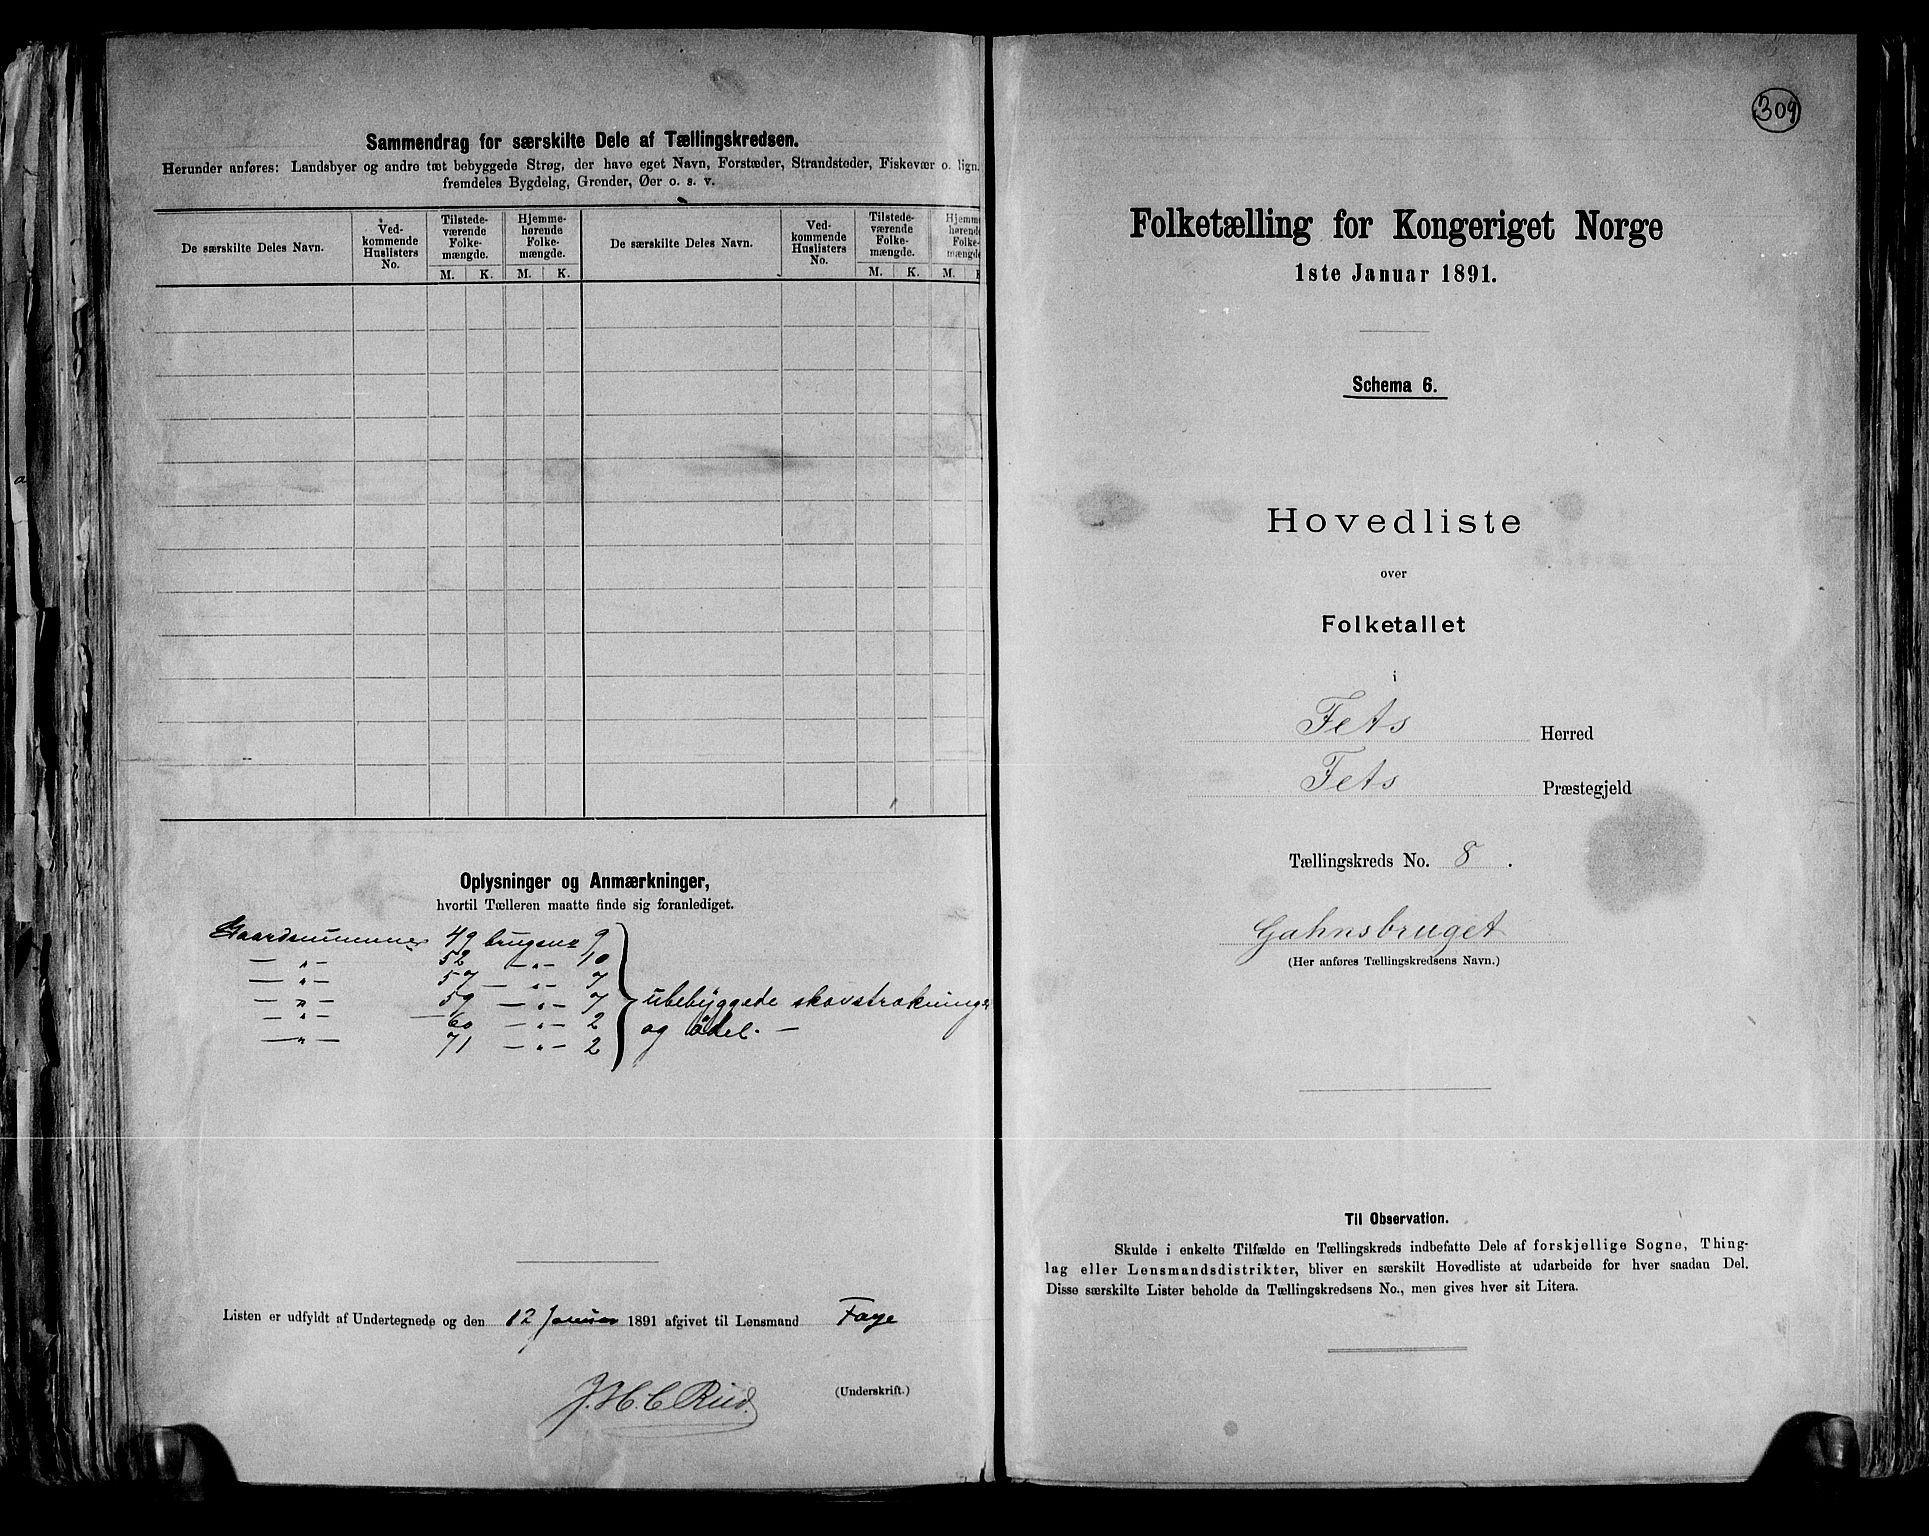 Sammendrag for særskilte Dele af Tællingskredsen.
Herunder anføres: Landsbyer og andre tæt bebyggede Strøg, der have eget Navn, Forstæder, Strandsteder, Fiskevær o. lign.
fremdeles Bygdelag, Grender, Øer o. s. v.
De særskilte Deles Navn.
Ved-
kommende
Huslisters
No.
Tilstede-
værende
Folke-
mængde.
M. K.
Hjemme-
hørende
Folke-
mængde.
M. K.
De særskilte Deles Navn.
Ved-
kommende
Huslisters
No.
Tilstede-
værende
Folke-
mængde.
M. K.
Hjemme
hørende
Folke-
mængde
M.
Oplysninger og Anmærkninger,
hvortil Tælleren maatte finde sig foranlediget.
Gaardsnummer 49 brugsnr 9
— „ — 52 — „ — 10
— „ — 57 — „ — 7
— „ — 59 — „ — 7 ubebyggede skovstrækninger
— „ — 60 — „ — 2 og ödel. —
— „ — 71 — „ — 2
Listen er udfyldt af Undertegnede og den 12 Januar 1891 afgivet til Lensmand Faye
J. H. C Riud.
(Underskrift.)
309
Folketælling for Kongeriget Norge
1ste Januar 1891.
Schema 6.
Hovedliste
over
Folketallet
i
Fets Herred
Fets Præstegjeld
Tællingskreds No. 8.
Gahnsbruget
(Her anføres Tællingskredsens Navn.)
Til Observation.
Skulde i enkelte Tilfælde en Tællingskreds indbefatte Dele af forskjellige Sogne, Thing-
lag eller Lensmandsdistrikter, bliver en særskilt Hovedliste at udarbeide for hver saadan Del.
Disse særskilte Lister beholde da Tællingskredsens No., men gives hver sit Litera.